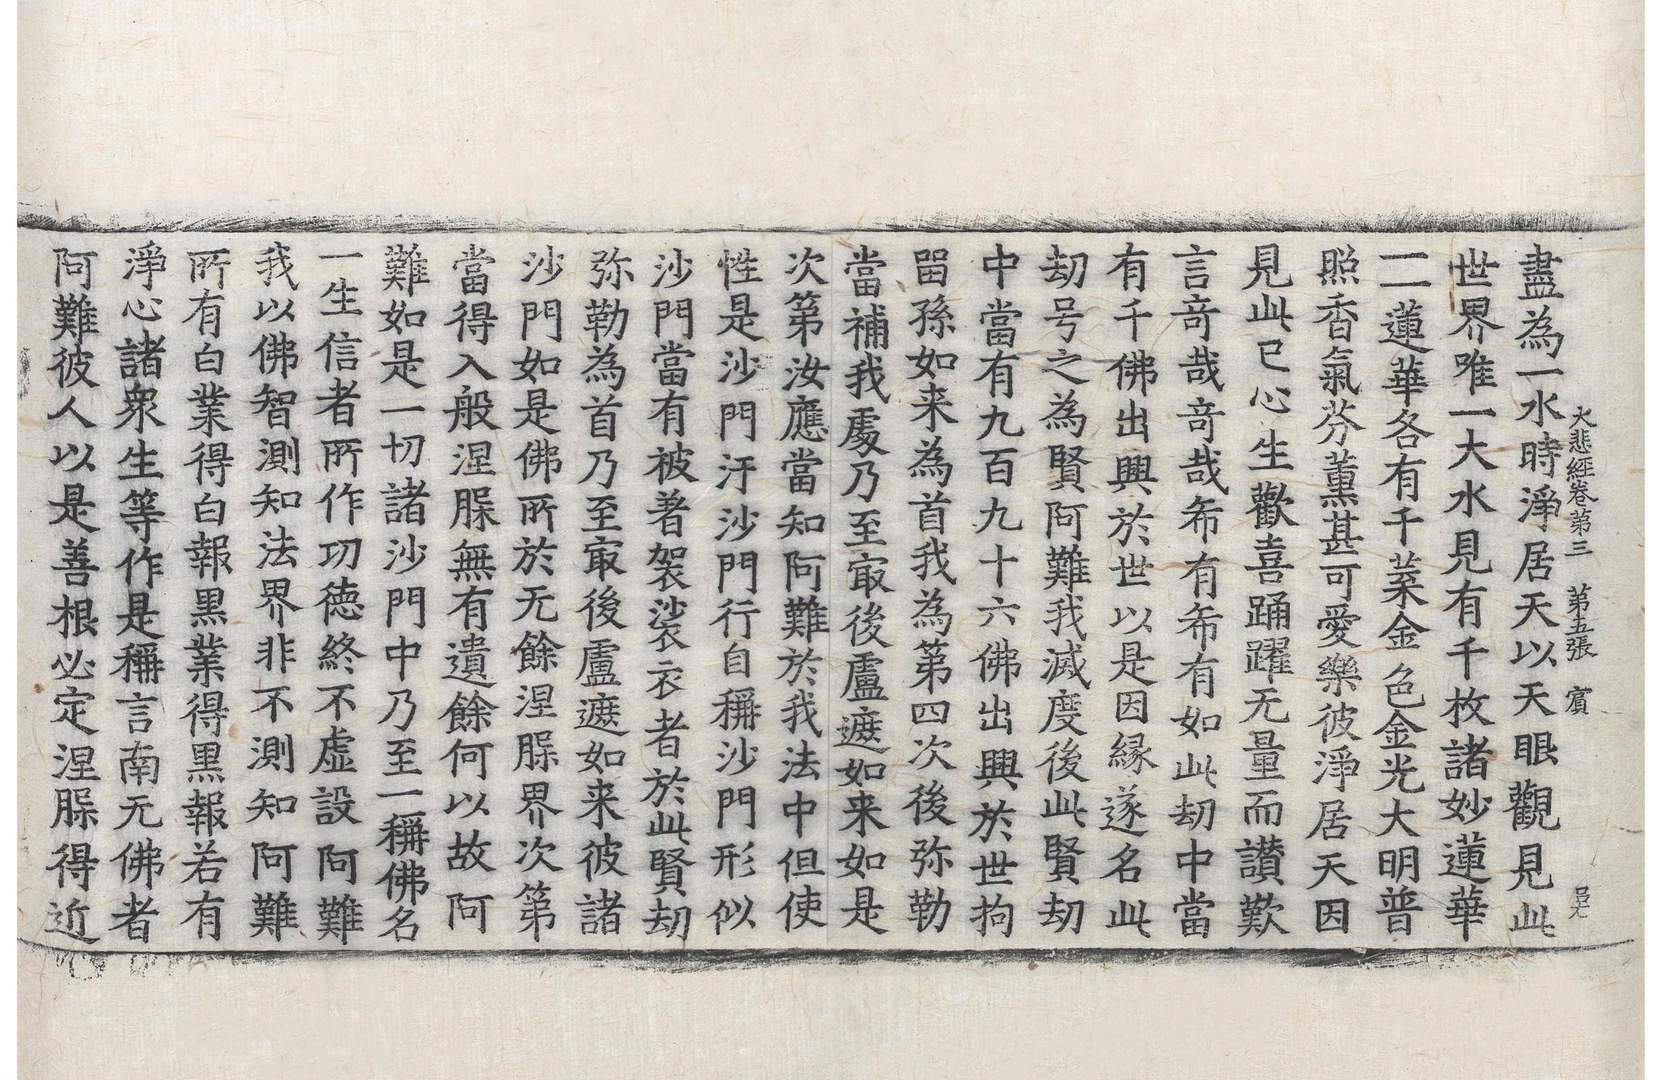 大悲經卷第三　第五張　賓　呂元
盡為一水時淨居天以天眼觀見此
世界唯一大水見有千枚諸妙蓮華
一一蓮華各有千葉金色金光大明普
照香氣芬薰甚可愛樂彼淨居天因
見此已心生歡喜踊躍无量而讃歎
言竒哉竒哉希有希有如此劫中當
有千佛出興於世以是因縁遂名此
劫号之為賢阿難我滅度後此賢劫
中當有九百九十六佛出興於世拘
留孫如来為首我為第四次後弥勒
當補我處乃至㝡後盧遮如来如是
次第汝應當知阿難於我法中但使
性是沙門汙沙門行自稱沙門形似
沙門當有被著袈裟衣者於此賢劫
弥勒為首乃至㝡後盧遮如来彼諸
沙門如是佛所於无餘涅槃界次第
當得入般涅槃無有遺餘何以故阿
難如是一切諸沙門中乃至一稱佛名
一生信者所作功徳終不虚設阿難
我以佛智測知法界非不測知阿難
所有白業得白報黒業得黒報若有
淨心諸衆生等作是稱言南无佛者
阿難彼人以是善根必定涅槃得近